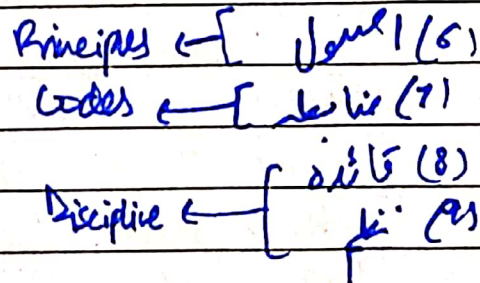 Principles ← [ اصول (6)
Codes ← [ ضابطہ (7)
(8)
Discipline ← [ نظم (9)